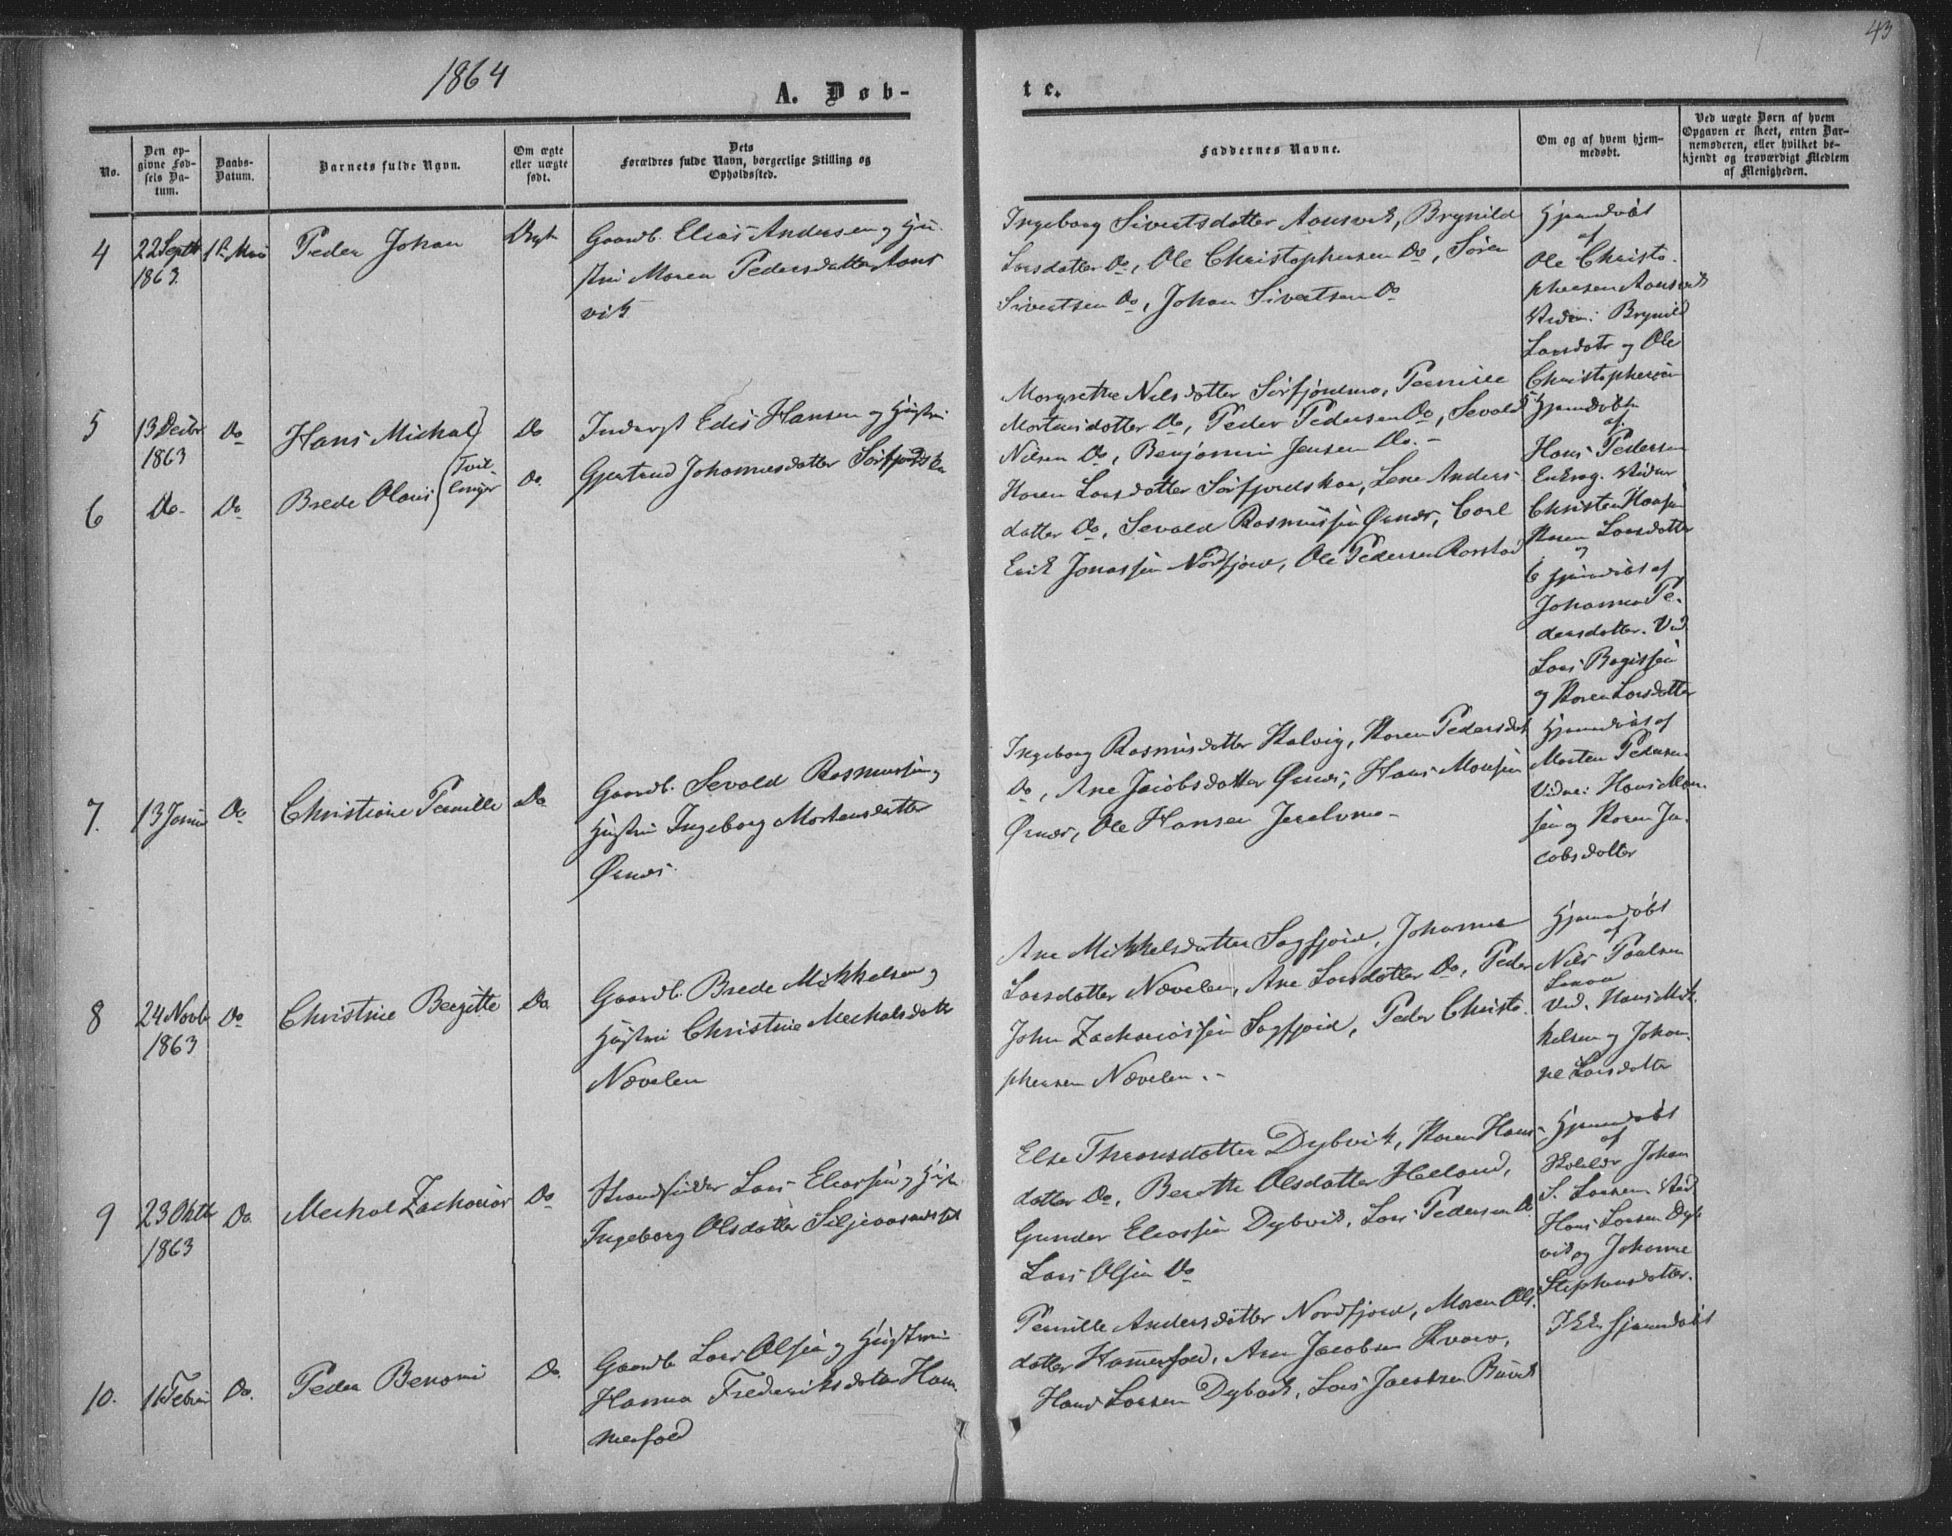 43
1864
A. Døb-
te.
No.
Den op-
givne Fød-
sels Da-
tum.
Daabs-
Datum.
Barnets fulde Navn.
Om ægte
eller uægte
født.
Dets
Forældres fulde Navn, borgerlige Stilling og
Opholdssted.
Faddernes Navne.
Om og af hvem hjem-
medøbt.
Ved uægte Børn af hvem
Opgaven er skeet, enten Bar-
nemoderen, eller hvilket be-
kjendt og troværdigt Medlem
af Menigheden.
4
22 Septbr
1863
1ste Mai
Peder Johan
Ægte
Gaardb. Elias Andersen og Hu-
stru Maren Pedersdatter Aans
vik
Ingeborg Sivertsdatter Aansvik, Brynild
Larsdatter Do, Ole Christophersen Do, Søren
Sivertsen Do, Johan Sivertsen Do
Hjemdøbt
af
Ole Christo-
phersen Aansvik
Vidner: Brynild
Larsdatr og Ole
Christophersen
5
13 Decbr
1863
Do
Hans Michal
Do
Inderst Edis Hansen og Hustru
Gjertrud Johannesdatter Sørfjordskar
Margrethe Nilsdatter Sørfjordmo, Pernille
Mortensdatter Do, Peder Pedersen Do, Sevald
Nilsen Do, Benjamin Jensen Do.-
5 Hjemdøbt
af:
Hans Pedersen
Vidner
Christen
Karen Larsdatter
6
Do
Do
Brede Olaus
Tvil-
linger
Do.
Karen Larsdatter Sørfjordskar, Lene Anders-
datter Do, Sevald Rasmussen Ørnes, Carl
Erik Jonassen Nordfjord, Ole Pedersen Rørstad
6 Hjemdøbt af
Johanna Pe-
dersdatter. Vid.
Lars
og Karen Larsdatter
7.
13 Janur
Do
Christiane Pernille
Do
Gaardb. Sevald Rasmussen og
Hustru Ingeborg Mortensdatter
Ørnes.
Ingeborg Rasmusdatter Kalvig, Karen Pedersdat
Do, Ane Jacobsdatter Ørnes, Hans Monsen
Ørnes, Ole Hansen
Hjemdøbt af
Morten Pedersen
Vidne: Hans Mon-
sen og Karen Ja-
cobsdatter
8
24 Novbr
1863
Do
Christine Bergitte
Do.
Gaardb. Brede Mikkelsen og
Hustru Christine Mechalsdattr
Nævelen
Ane Mikkelsdatter Sagfjord, Johanna
Larsdatter Nævelen, Ane Larsdatter Do, Peder
John Zachariassen Sagfjord, Peder Christo-
phersen Nævelen.-
Hjemdøbt
af
Nils Paulsen
Vid. Hans Mik-
kelsen og Johan-
ne Larsdatter
9
23 Oktbr
1863
Do.
Mechal Zacharias
Do
Strandsidder Lars Eliassen og Hustr.
Ingeborg Olsdatter
Else Thronsdatter Dybvik, Karen Hans-
datter Do, Berethe Olsdatter Helland,
Gunder Eliassen Dybvik, Lars Pedersen Do
Lars Olsen Do
Hjemdøbt
af
Johan
S. Larsen. Vid
Hans Larsen Dyb
vik og Johanne
Stephensdatter.
10.
Do.
Peder Benoni
Do.
Gaardb. Lars Olsen og Hustru
Hanna Frederiksdatter Ham-
merfald
Pernille Andersdatter Nordfjord, Maren Ols-
datter Hammerfald, Ane Jacobsen
Hans Larsen Dybvik, Lars Jacobsen
Ikke hjemdøbt